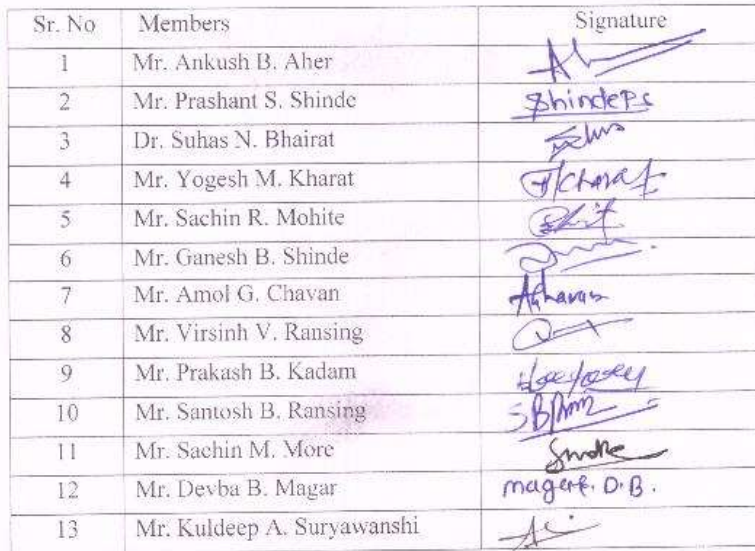 Sr. No Members Signature
1 Mr. Ankush B. Aher
2 Mr. Prashant S. Shinde ShindePS
3 Dr. Suhas N. Bhairat
4 Mr. Yogesh M. Kharat
5 Mr. Sachin R. Mohite
6 Mr. Ganesh B. Shinde
7 Mr. Amol G. Chavan
8 Mr. Virsinh V. Ransing
9 Mr. Prakash B. Kadam
10 Mr. Santosh B. Ransing
11 Mr. Sachin M. More
12 Mr. Devba B. Magar D.B.
13 Mr. Kuldeep A. Suryawanshi